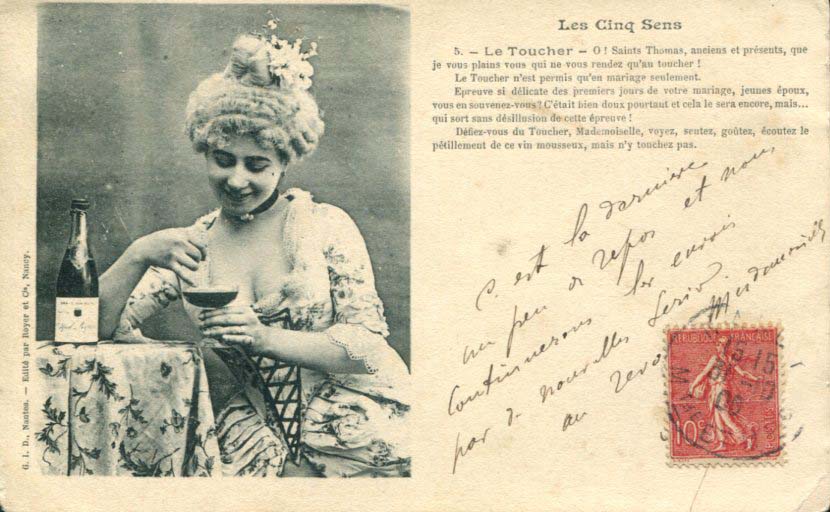 Les Cinq Sens
5. — Le Toucher — O ! Saints Thomas, anciens et présents, que
je vous plains vous qui ne vous rendez qu'au toucher !
Le Toucher n'est permis qu'en mariage seulement.
Epreuve si délicate des premiers jours de votre mariage, jeunes époux,
vous en souvenez-vous? C'était bien doux pourtant et cela le sera encore, mais...
qui sort sans désillusion de cette épreuve !
Défiez-vous du Toucher, Mademoiselle, voyez, sentez, goûtez, écoutez le
pétillement de ce vin mousseux, mais n'y touchez pas.
c'est la dernière
un peu de repos et nous
continuerons les envois
par de nouvelles Series
au revoir Mesdemoiselles
RÉPUBLIQUE FRANÇAISE
10c
G. I. D., Nantes. — Edité par Royer et Cie, Nancy.